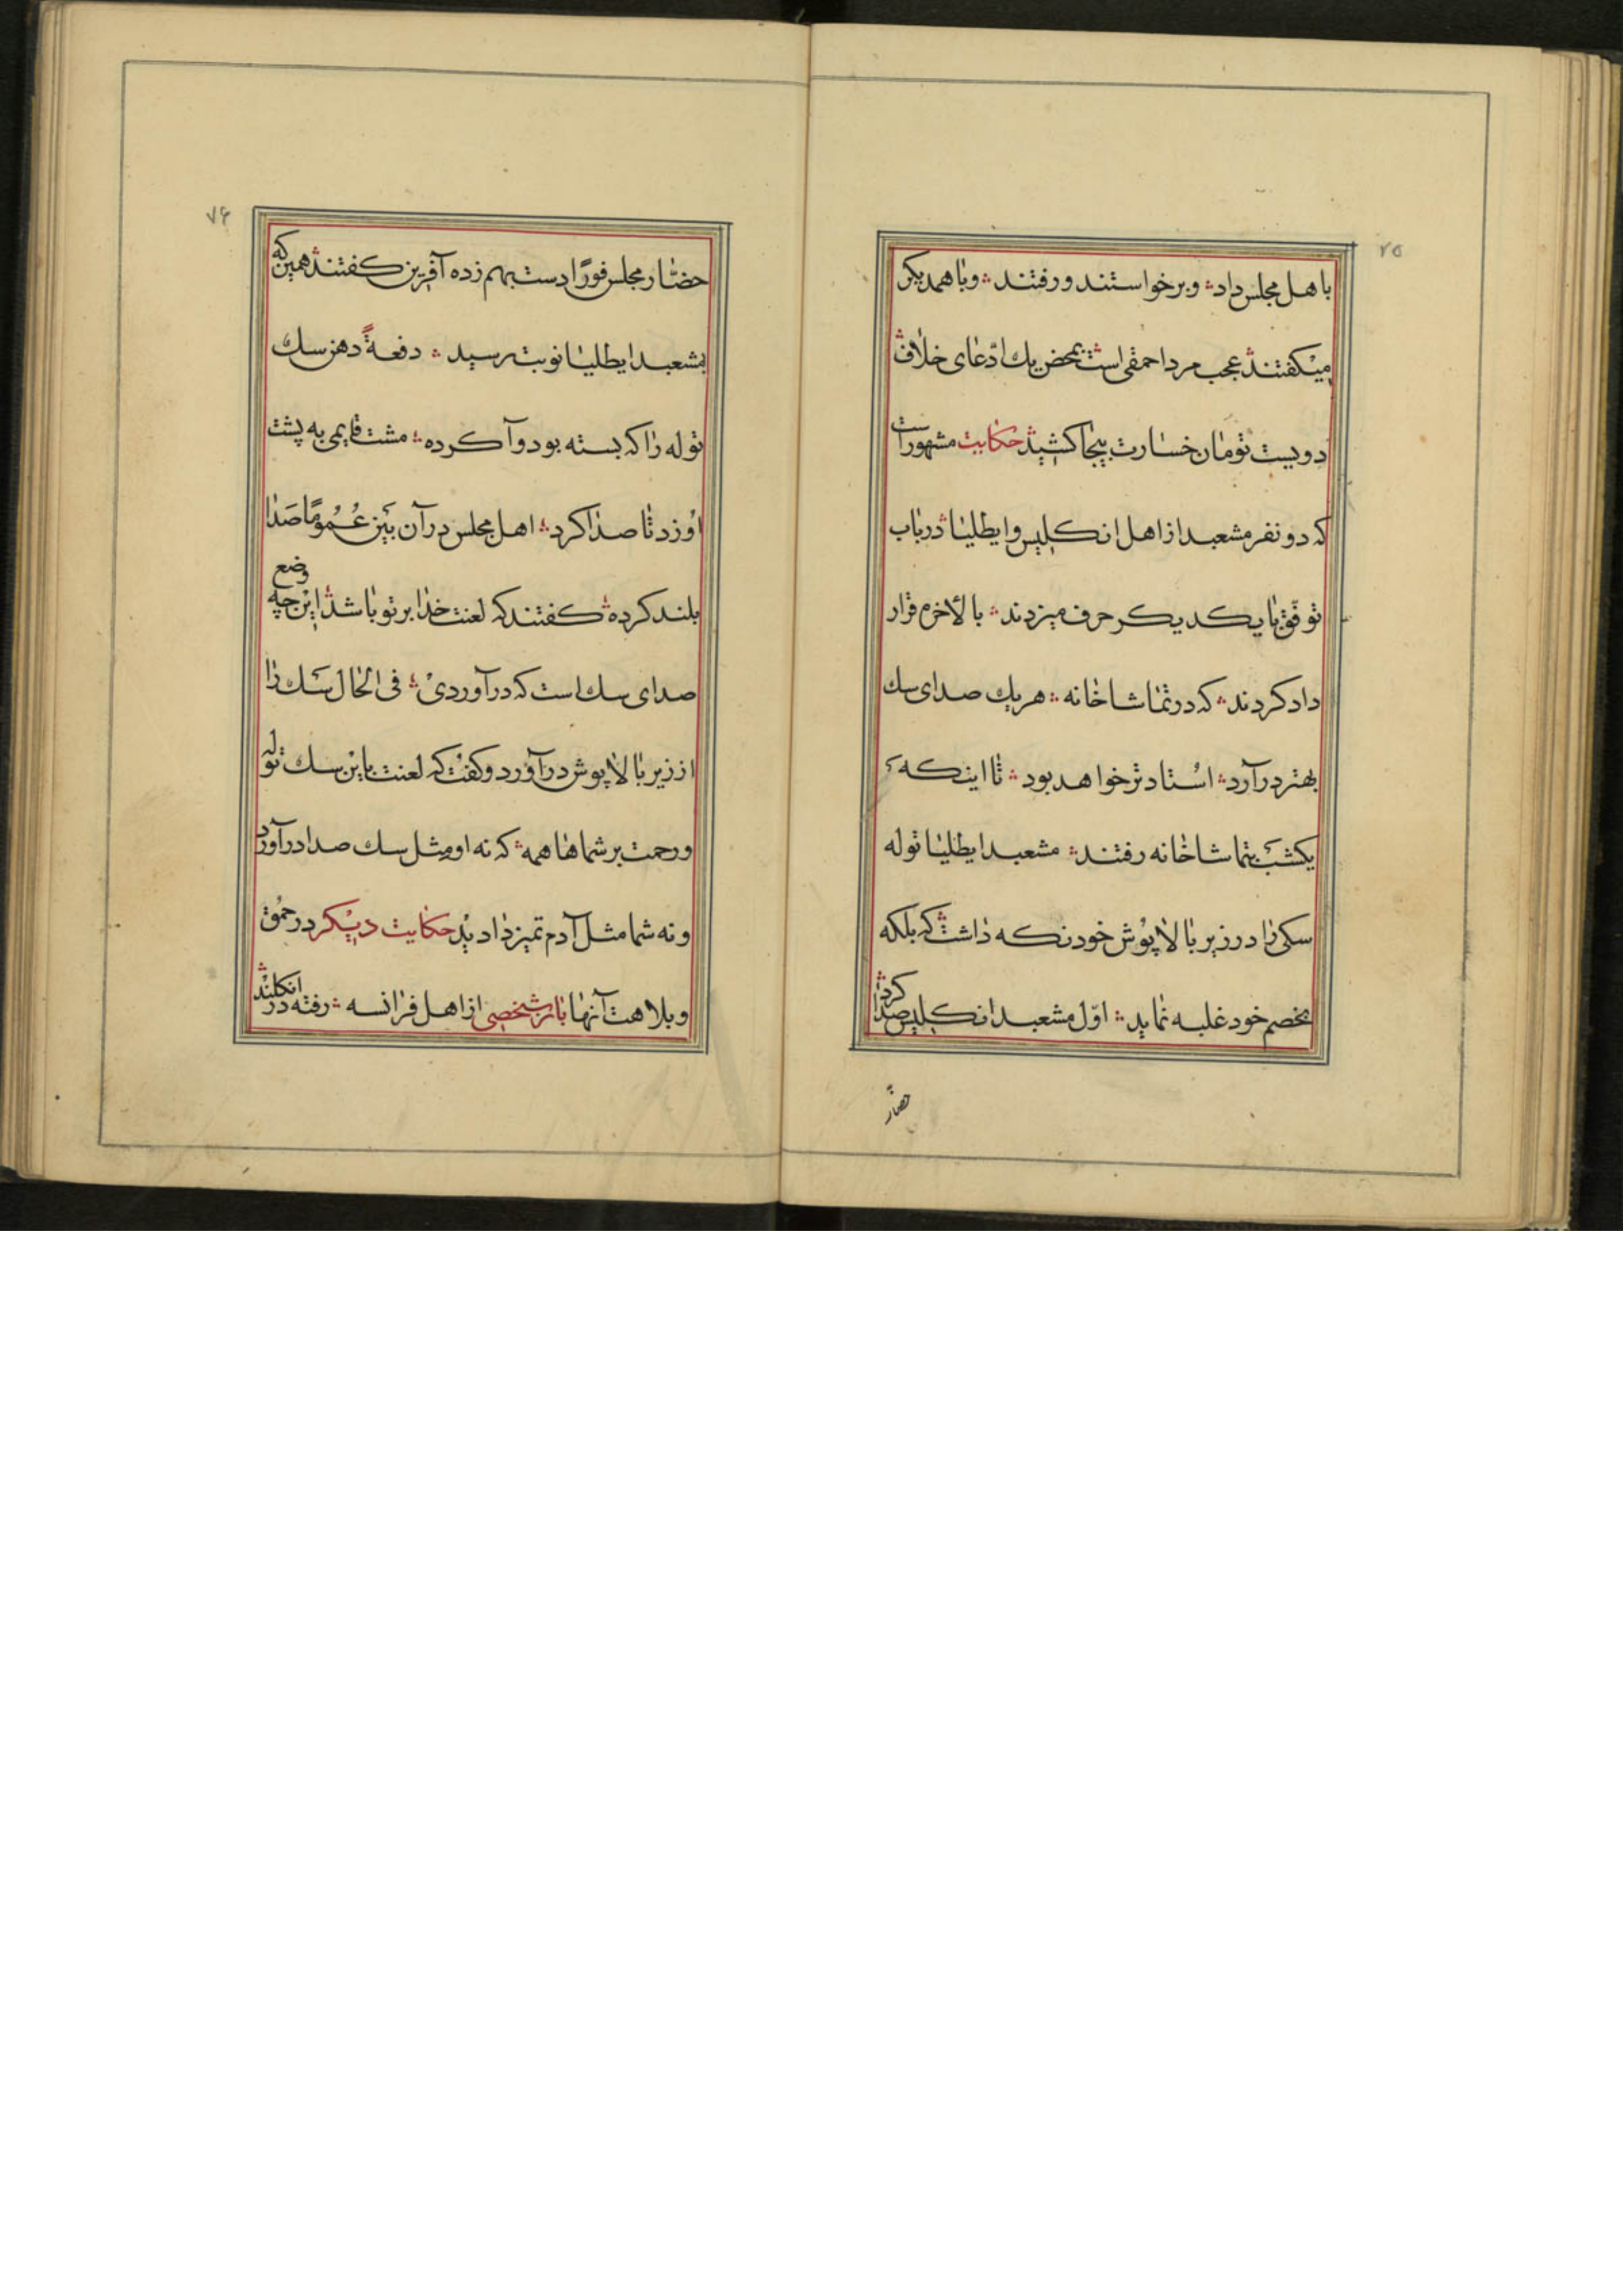 ۷۵
باهل مجلس داد؞ وبرخواستند ورفتند؞ وباهمدیکر
میکفتند؞ عجب مرد احمقی است؞ بمحض یك ادّعای خلاف؞
دویست تومان خسارت بیجا کشید؞ حکایت مشهور است
که دو نفر مشعبد از اهل انکلیس وایطلیا؞ درباب
توفّق با یکدیکر حرف میزدند؞ بالأخره قرار
داد کردند؞ که در تماشاخانه؞ هریك صدای سك
بهتر درآرد؞ اُستادتر خواهد بود؞ تا اینکه
یکشب بتماشاخانه رفتند؞ مشعبد ایطلیا توله
سکی را در زیر بالاپوش خود نکه داشت؞ که بلکه
بخصم خود غلبه نماید؞ اوّل مشعبد انکلیس صدا کرد؞
حضّار
۷۶
حضّار مجلس فورًا دست بهم زده آفرین کفتند؞ همین که
بمشعبد ایطلیا نوبت رسید؞ دفعةً دهن سك
توله را که بسته بود وآ کرده؞ مشت قایمی به پشت
اُو زد تا صدا کرد؞ اهل مجلس در آن بَین عُمُومًا صَدا
بلند کرده؞ کفتند که لعنت خدا بر تو باشد؞ این چه وضع
صدای سك است که در آوردی؞ فی الحال سَك را
از زیر بالاپوش درآورد وکفت که لعنت باین سك توله
ورحمت بر شماها همه؞ که نه او مثل سك صدا درآورد
ونه شما مثل آدم تمیز دادید حکایت دیکر در حمق
وبلاهت آنها باز شخصی از اهل فرانسه؞ رفته در انکلند؞